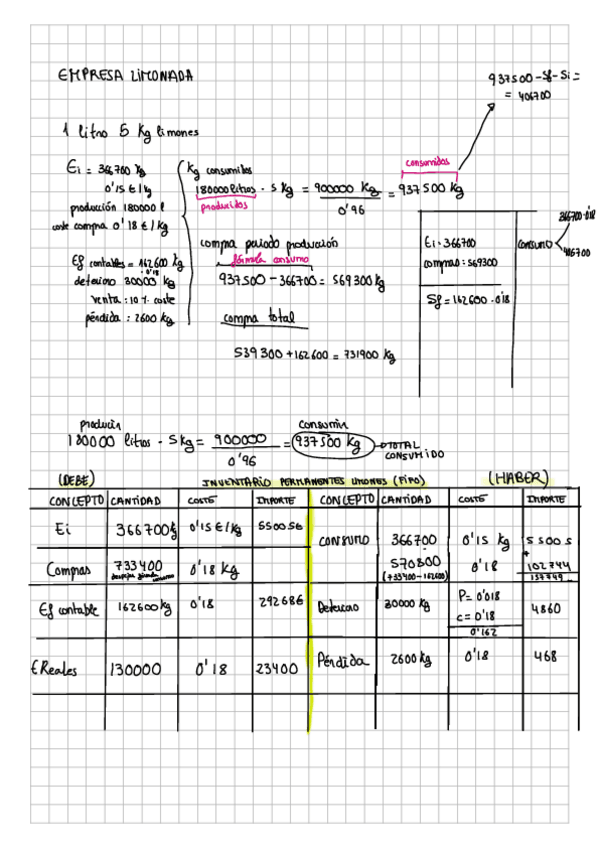 EMPRESA LIMONADA
937500 - Sf - Si =
= 406700
1 litro 5 kg limones
Ei = 366700 kg
0'15 €/kg
producción 180000 l
coste compra 0'18 €/kg
Ef contables = 162600 kg
· 0'18
deterioro 30000 kg
venta : 10% coste
pérdida : 2600 kg
kg consumidos
consumidos
180000 litros · 5 kg = 900000 kg = 937500 kg
producidos
0'96
compra periodo producción
fórmula consumo
937500 - 366700 = 569300 kg
compra total
539300 + 162600 = 731900 kg
366700·0'15
Ei · 366700
consumo
406700
compras : 569300
Sf = 162600 · 0'18
producir
consumir
180000 litros · 5 kg = 900000 = 937500 kg
0'96
TOTAL CONSUMIDO
(DEBE) INVENTARIO PERMANENTES LIMONES (FIFO) (HABER)
CONCEPTO CANTIDAD COSTE IMPORTE CONCEPTO CANTIDAD COSTE IMPORTE
Ei 366700 kg 0'15 €/kg 55005€ CONSUMO 366700 0'15 kg 55005
+
Compras 733400 0'18 kg 570800 0'18 102744
(733400-162600) 157749
Ef contable 162600 kg 0'18 292686 Deterioro 30000 kg P= 0'018 4860
c= 0'18
0'162
E Reales 130000 0'18 23400 Pérdida 2600 kg 0'18 468